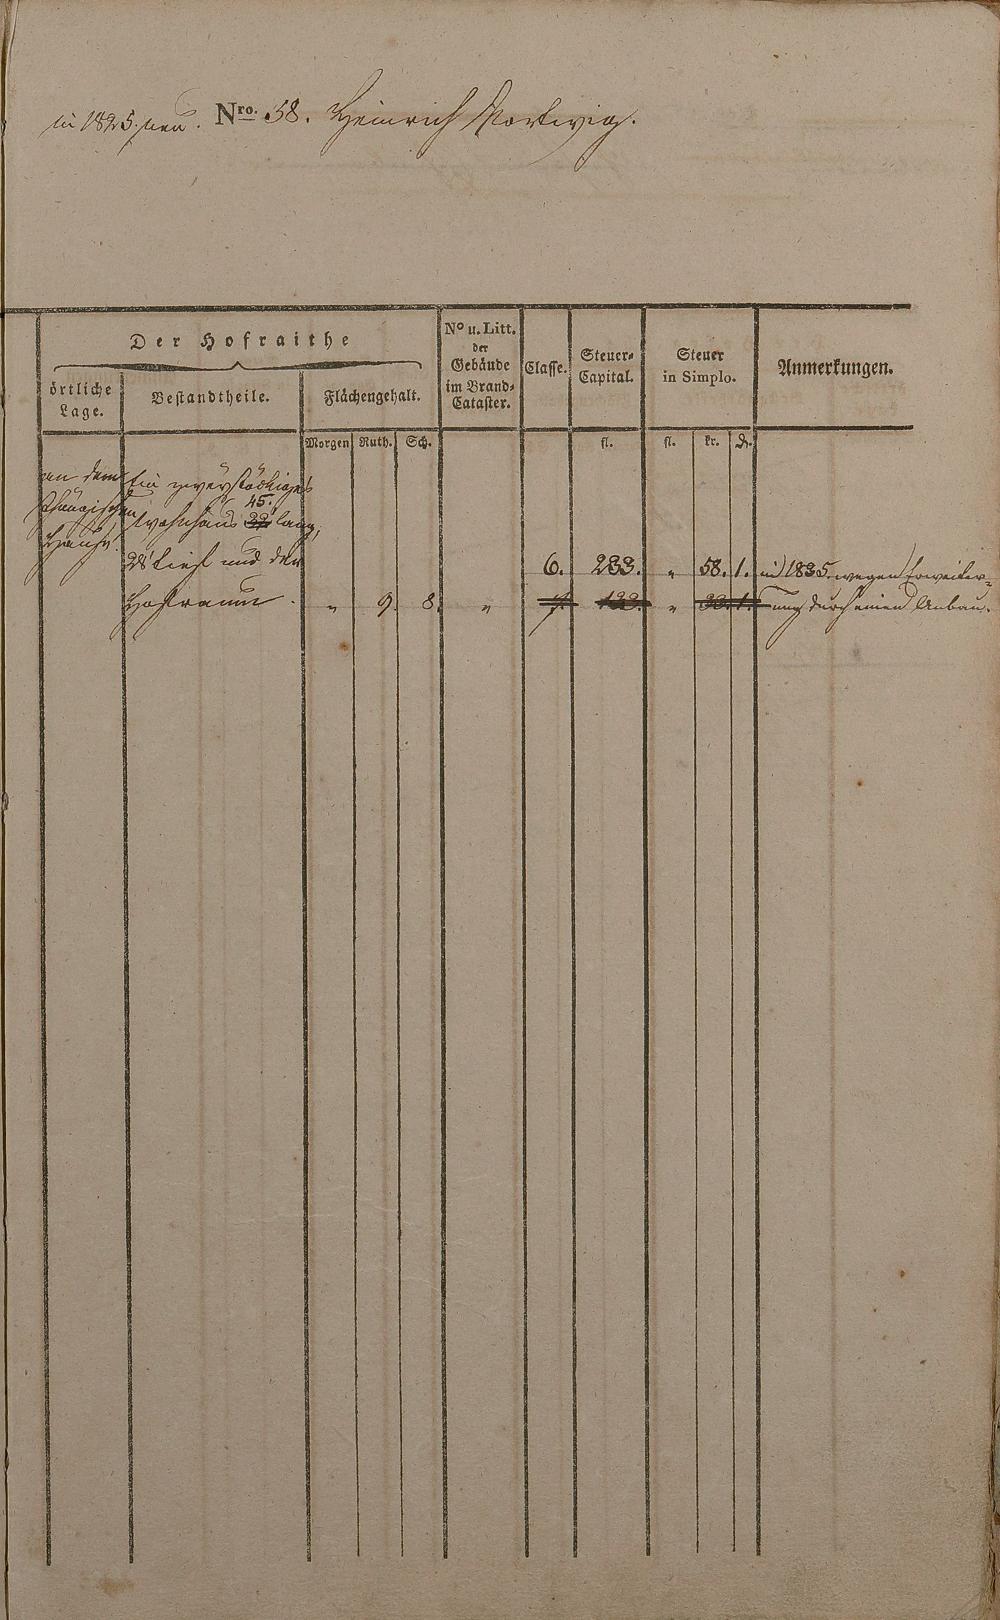 in 1825. neu. Nro. 58. Heinrich Martwig.
Der Hofraithe
örtliche Lage.
Bestandtheile.
Flächengehalt.
No u. Litt. der Gebäude im Brand-Cataster.
Classe.
Steuer-Capital.
Steuer in Simplo.
Anmerkungen.
Morgen Ruth. Sch. fl. fl. kr. d.
an dem Ein zweystöckiges
45.
Wohnhaus 33' lang,
Hause.
28' tief und der 6. 233. " 58. 1. in 1835 wegen Erweiter-
Hofraum. " 9. 8. " 7. 133. " 33. 1. ung durch einen Anbau.